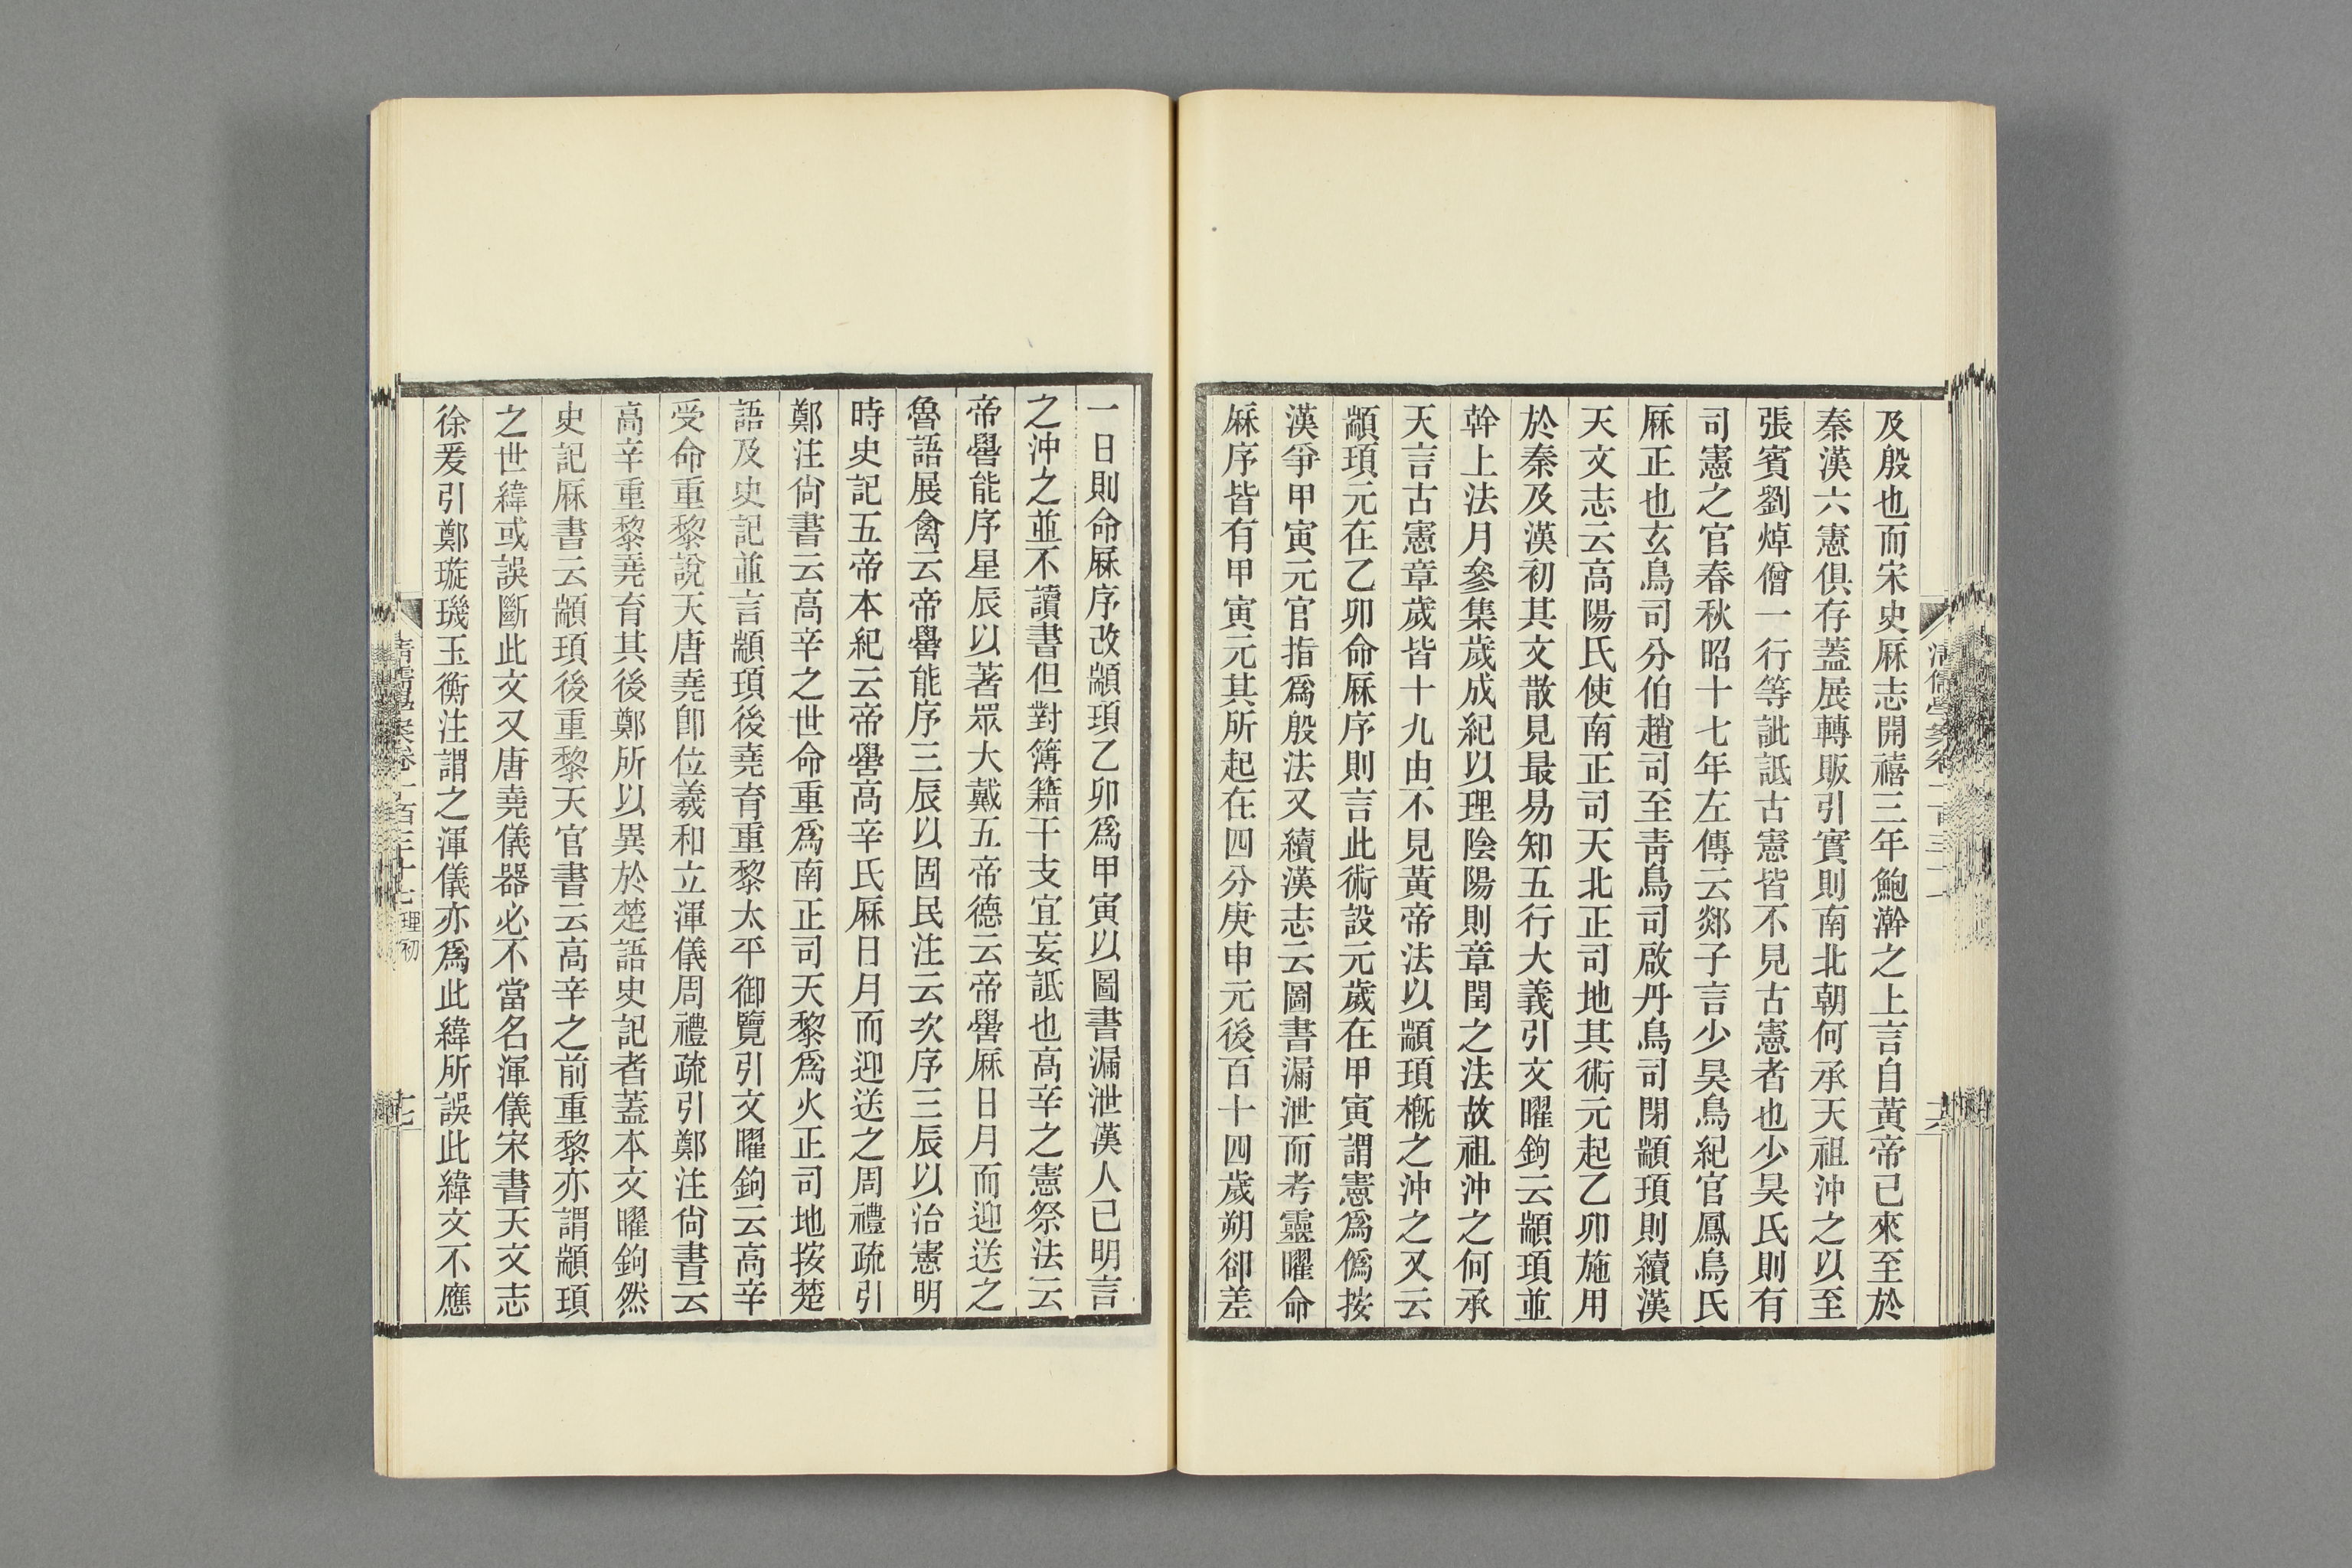 及殷也而宋史厤志開禧三年鮑澣之上言自黃帝已來至於
秦漢六憲俱存蓋展轉販引實則南北朝何承天祖沖之以至
張賓劉焯僧一行等訿詆古憲皆不見古憲者也少昊氏則有
司憲之官春秋昭十七年左傳云郯子言少昊鳥紀官鳳鳥氏
厤正也玄鳥司分伯趙司至青鳥司啟丹鳥司閉顓頊則續漢
天文志云高陽氏使南正司天北正司地其術元起乙卯施用
於秦及漢初其文散見最易知五行大義引文曜鉤云顓頊並
幹上法月參集歲成紀以理陰陽則章閏之法故祖沖之何承
天言古憲章歲皆十九由不見黃帝法以顓頊槪之沖之又云
顓頊元在乙卯命厤序則言此術設元歲在甲寅謂憲爲僞按
漢爭甲寅元官指爲殷法又續漢志云圖書漏泄而考靈曜命
厤序皆有甲寅元其所起在四分庚申元後百十四歲朔卻差
一日則命厤序改顓頊乙卯爲甲寅以圖書漏泄漢人已明言
之沖之並不讀書但對簿籍干支宜妄詆也高辛之憲祭法云
帝嚳能序星辰以著眾大戴五帝德云帝嚳厤日月而迎送之
魯語展禽云帝嚳能序三辰以固民注云次序三辰以治憲明
時史記五帝本紀云帝嚳高辛氏厤日月而迎送之周禮疏引
鄭注尙書云高辛之世命重爲南正司天黎爲火正司地按楚
語及史記並言顓頊後堯育重黎太平御覽引文曜鉤云高辛
受命重黎說天唐堯卽位羲和立渾儀周禮疏引鄭注尙書云
高辛重黎堯育其後鄭所以異於楚語史記者蓋本文曜鉤然
史記厤書云顓頊後重黎天官書云高辛之前重黎亦謂顓頊
之世緯或誤斷此文又唐堯儀器必不當名渾儀宋書天文志
徐爰引鄭璇璣玉衡注謂之渾儀亦爲此緯所誤此緯文不應
清儒學案卷一百三十七 理初 十七